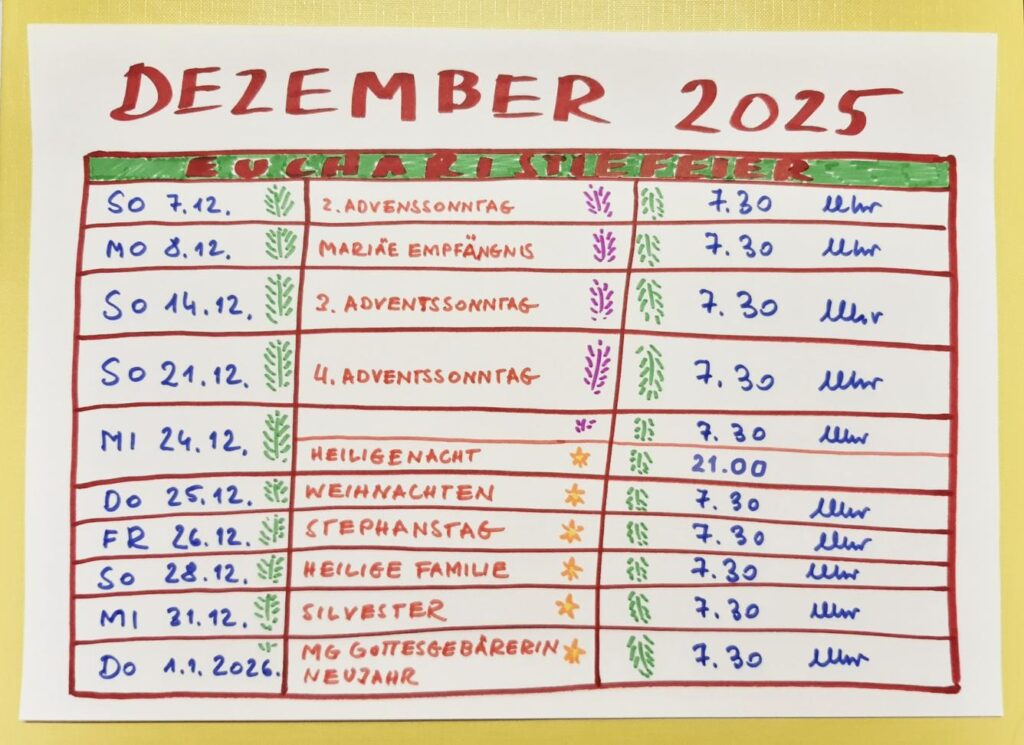 DEZEMBER 2025
EUCHARISTIEFEIER
SO 7.12. 2. ADVENSSONNTAG 7.30 Uhr
MO 8.12. MARIÄE EMPFÄNGNIS 7.30 Uhr
SO 14.12. 3. ADVENTSSONNTAG 7.30 Uhr
SO 21.12. 4. ADVENTSSONNTAG 7.30 Uhr
MI 24.12. 7.30 Uhr
HEILIGENACHT 21.00
DO 25.12. WEIHNACHTEN 7.30 Uhr
FR 26.12. STEPHANSTAG 7.30 Uhr
SO 28.12. HEILIGE FAMILIE 7.30 Uhr
MI 31.12. SILVESTER 7.30 Uhr
DO 1.1.2026. MG GOTTESGEBÄRERIN 7.30 Uhr
NEUJAHR